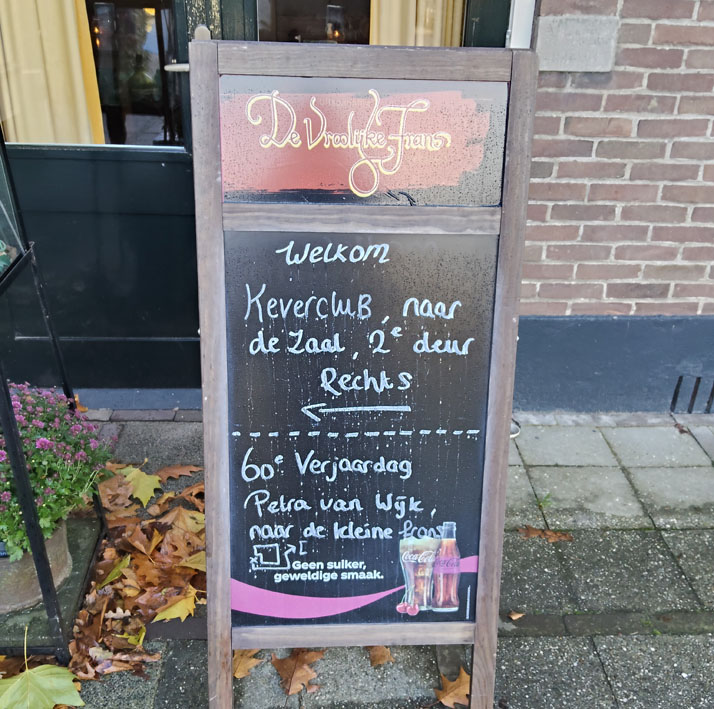 De Vroolijke Frans
Welkom
Keverclub, naar
de Zaal, 2e deur
Rechts
60e Verjaardag
Petra van Wijk,
naar de kleine frans
Geen suiker,
geweldige smaak.
Coca-Cola